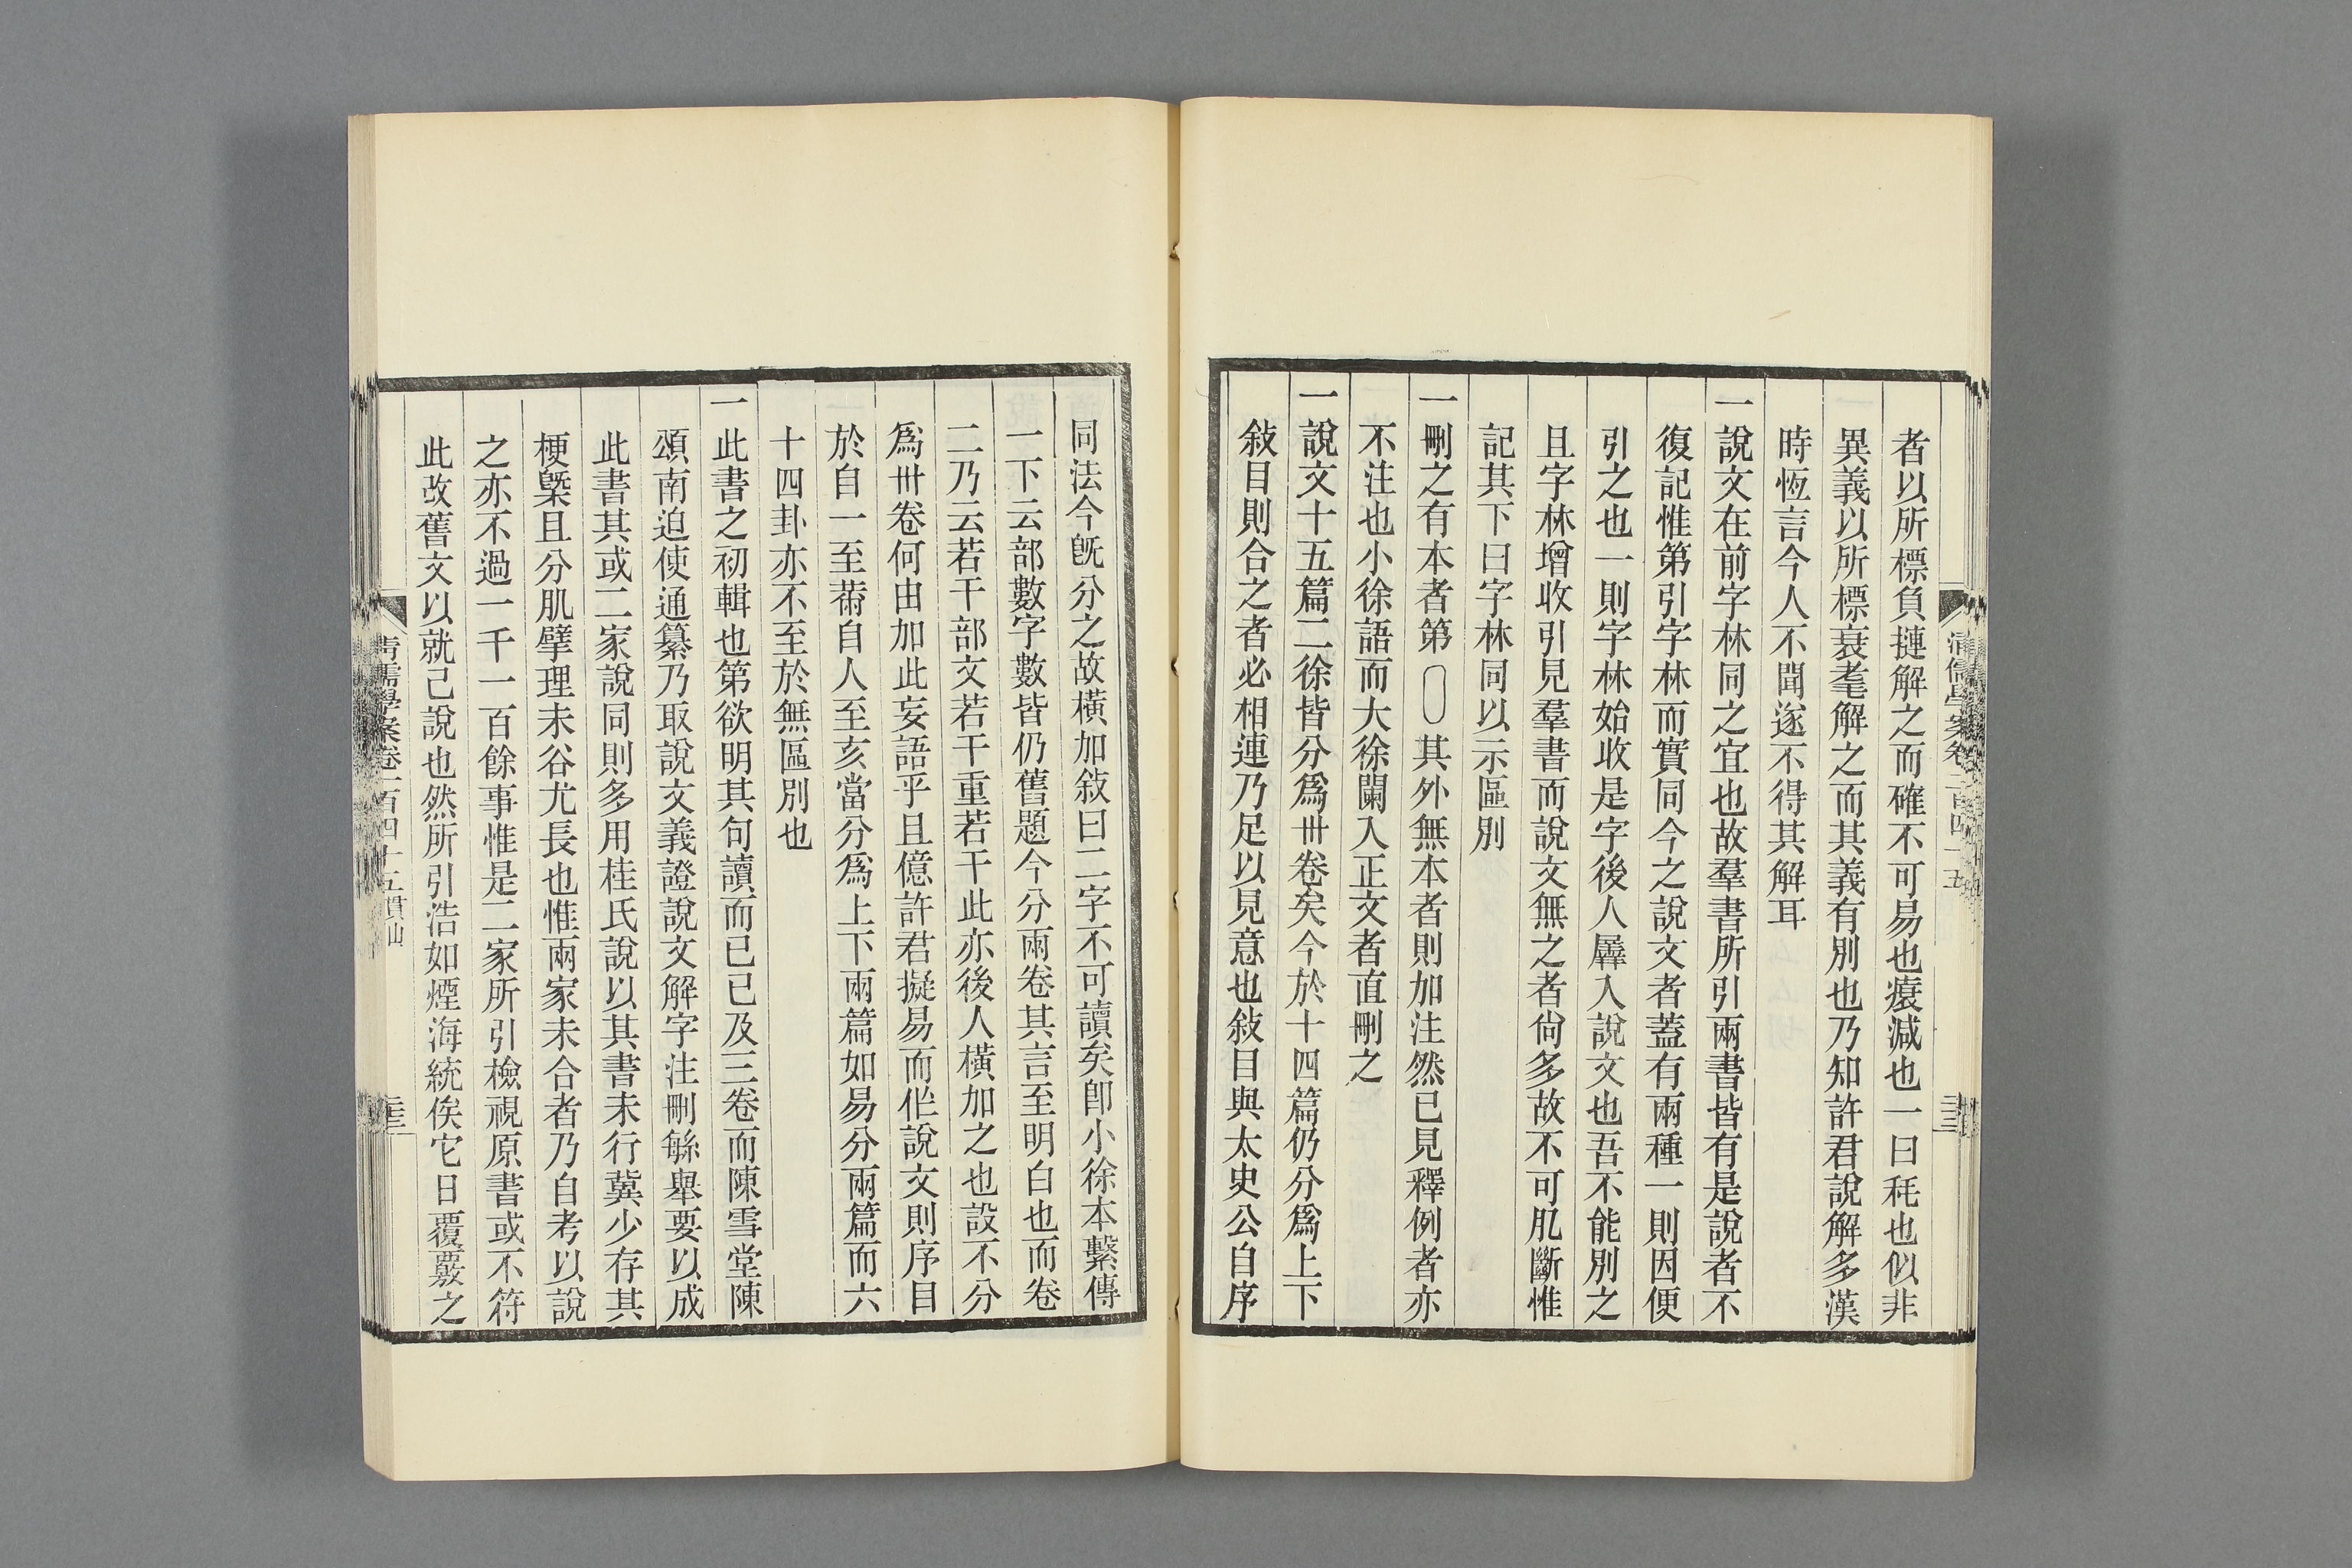 者以所標負摙解之而確不可易也㾕減也一曰秏也似非
異義以所標衰耄解之而其義有別也乃知許君說解多漢
時恆言今人不聞遂不得其解耳
一說文在前字林同之宜也故羣書所引兩書皆有是說者不
復記惟第引字林而實同今之說文者蓋有兩種一則因便
引之也一則字林始收是字後人羼入說文也吾不能別之
且字林增收引見羣書而說文無之者尙多故不可肊斷惟
記其下曰字林同以示區別
一刪之有本者第〇其外無本者則加注然已見釋例者亦
不注也小徐語而大徐闌入正文者直刪之
一說文十五篇二徐皆分爲卅卷矣今於十四篇仍分爲上下
敍目則合之者必相連乃足以見意也敍目與太史公自序
同法今旣分之故橫加敍曰二字不可讀矣卽小徐本繫傳
一下云部數字數皆仍舊題今分兩卷其言至明白也而卷
二乃云若干部文若干重若干此亦後人橫加之也設不分
爲卅卷何由加此妄語乎且億許君擬易而作說文則序目
於自一至𦬇自人至亥當分爲上下兩篇如易分兩篇而六
十四卦亦不至於無區別也
一此書之初輯也第欲明其句讀而已已及三卷而陳雪堂陳
頌南迫使通纂乃取說文義證說文解字注刪緐舉要以成
此書其或二家說同則多用桂氏說以其書未行冀少存其
梗槩且分肌擘理未谷尤長也惟兩家未合者乃自考以說
之亦不過一千一百餘事惟是二家所引檢視原書或不符
此改舊文以就己說也然所引浩如煙海統俟它日覆覈之
清儒學案卷一百四十五貫山